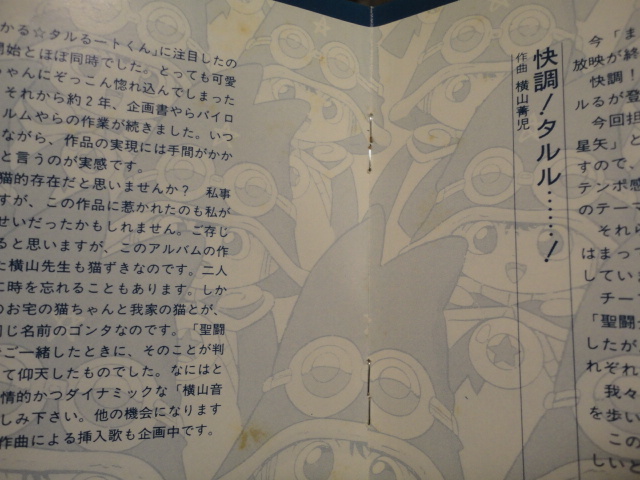 かる☆タルるートくん」に注目したの
開始とほぼ同時でした。とっても可愛
ちゃんにぞっこん惚れ込んでしまった
それから約２年、企画書やらパイロ
ルムやらの作業が続きました。いつ
ながら、作品の実現には手間がかか
と言うのが実感です。
猫的存在だと思いませんか？　私事
すが、この作品に惹かれたのも私が
せいだったかもしれません。ご存じ
ると思いますが、このアルバムの作
た横山先生も猫ずきなのです。二人
に時を忘れることもあります。しか
のお宅の猫ちゃんと我家の猫とが、
同じ名前のゴンタなのです。「聖闘
でご一緒したときに、そのことが判
て仰天したものでした。なにはと
情的かつダイナミックな「横山音
しみ下さい。他の機会になります
作曲による挿入歌も企画中です。
快調！タルル……！
作曲 横山菁児
今「ま
放映が終
快調！
ルるが登
今回担
星矢」と
すので、
テンポ感
のテーマ
それら
はまって
していま
チー
「聖闘
したが、
れぞれ
我々
を歩い
この
しいと